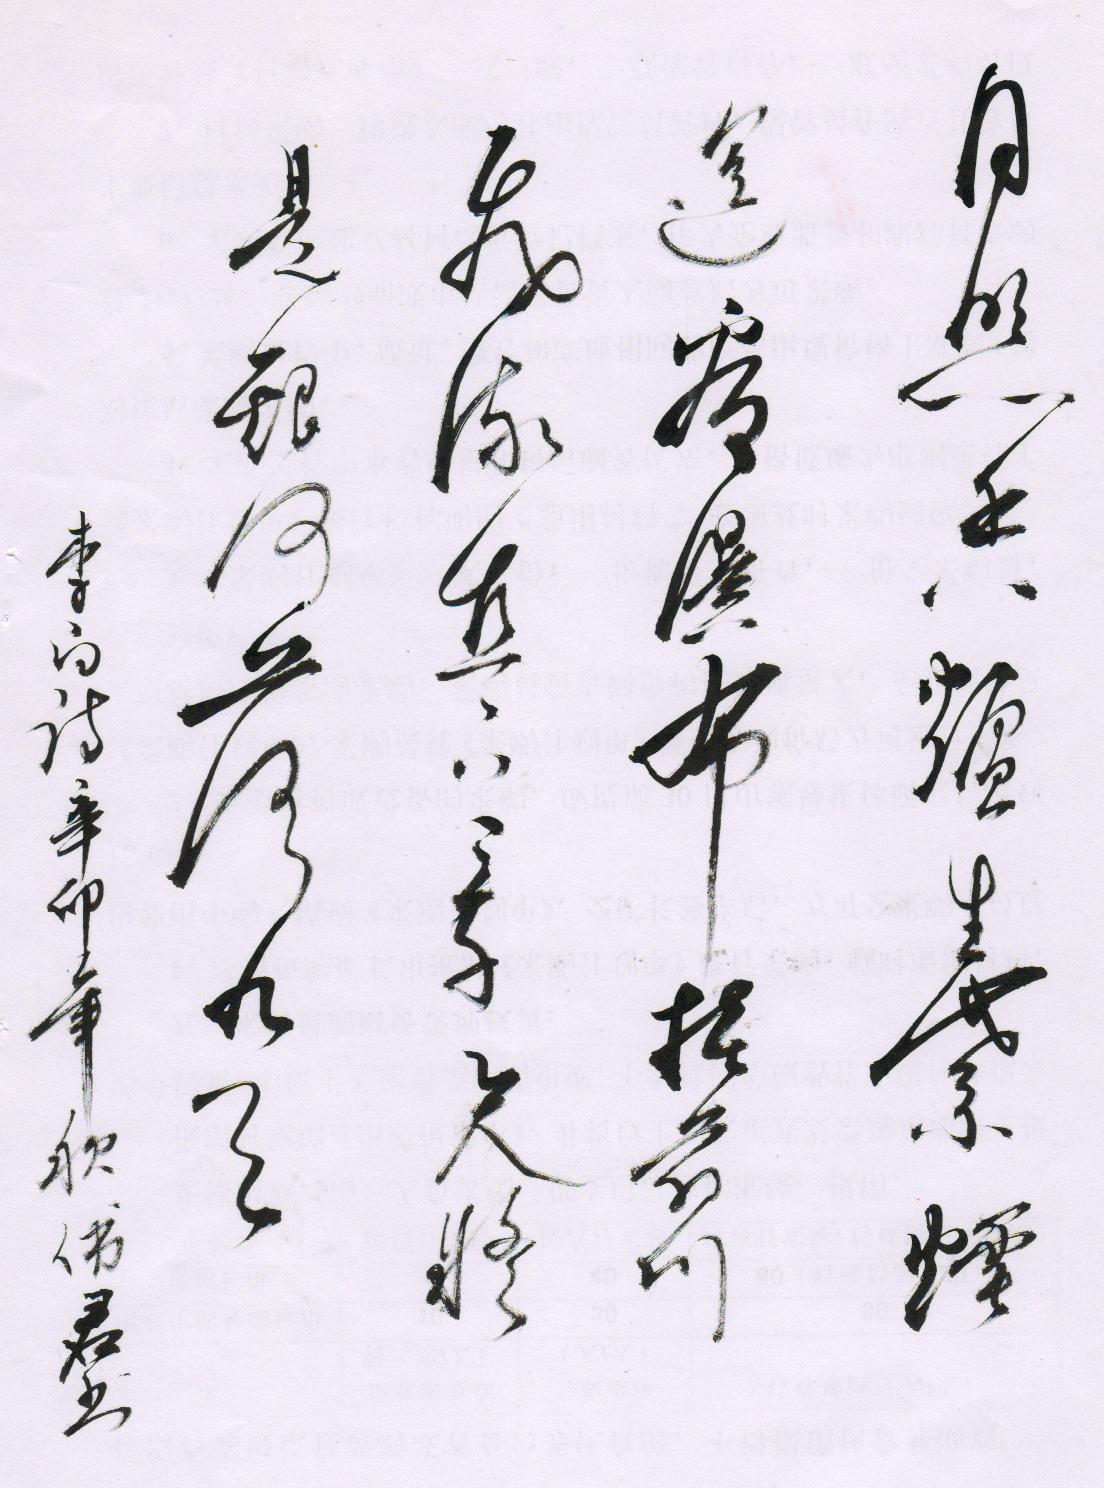 日照香爐生紫煙
遥看瀑布挂前川
飛流直下三千尺疑
是銀河落九天
李白詩辛卯年秋偉君书